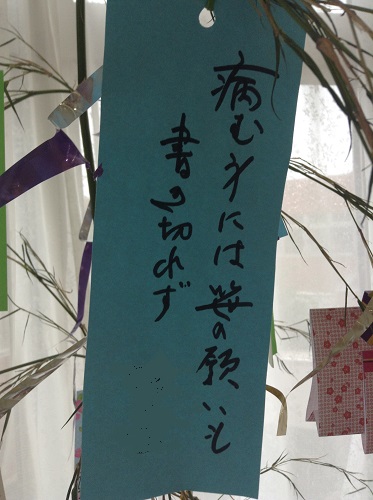 病む身には笹の願いも
書き切れず